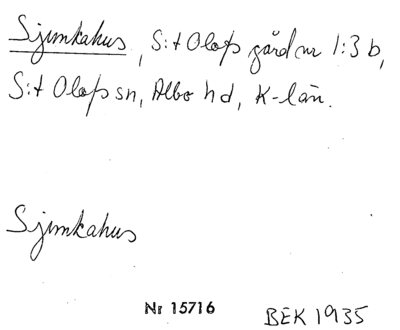 Sjimkahus, S:t Olofs gård nr 1:3 b,
S:t Olofs sn, Albo hd, K-län.
Sjimkahus
Nr 15716
BEK 1935